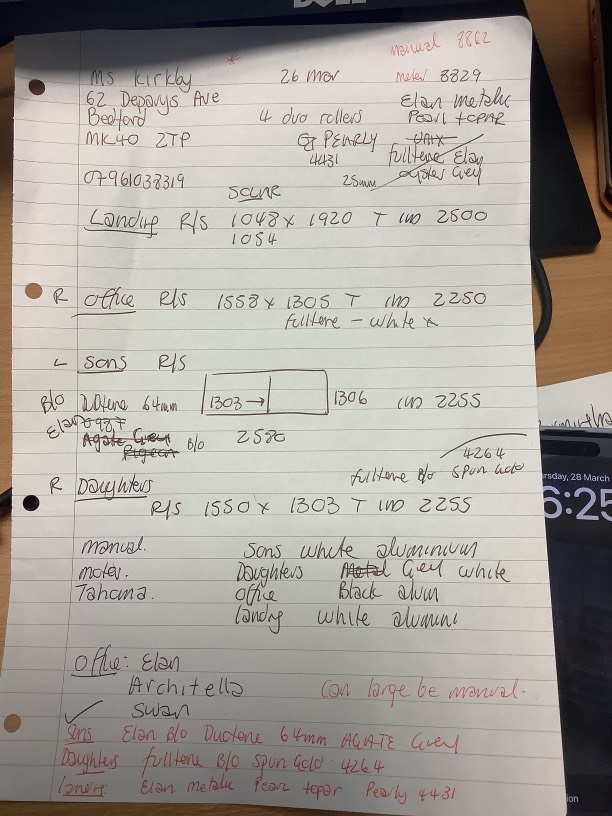 DELL
manual 8862
Ms Kirkby 26 Mar motor 8829
62 Deparys Ave Elan metalic
Bedford 4 duo rollers Pearl topar
MK40 2TP PEARLY
4431 fulltone Elan
07961038319 25mm oyster Grey
Landing R/S 1048 x 1920 T IND 2500
1054
R Office R/S 1558 x 1305 T IND 2250
fulltone - white x
L Sons R/S
B/O Duotone 64mm 1303 → 1306 IND 2255
Elan 0987
Agate Grey B/O 2580
Pigeon
4264
fulltone B/O spun Gold
R Daughters
R/S 1550 x 1303 T IND 2255
rsday, 28 March
6:25
manual. Sons white aluminium
motor. Daughters Metal Grey white
Tahoma. Office Black alum
landing white alumini
Office: Elan
Architella Can large be manual.
✓ Swan
Sons Elan B/O Duotone 64mm AGATE Grey
Daughters fulltone B/O Spun Gold 4264
Landing: Elan metalic Pearl topar Pearly 4431